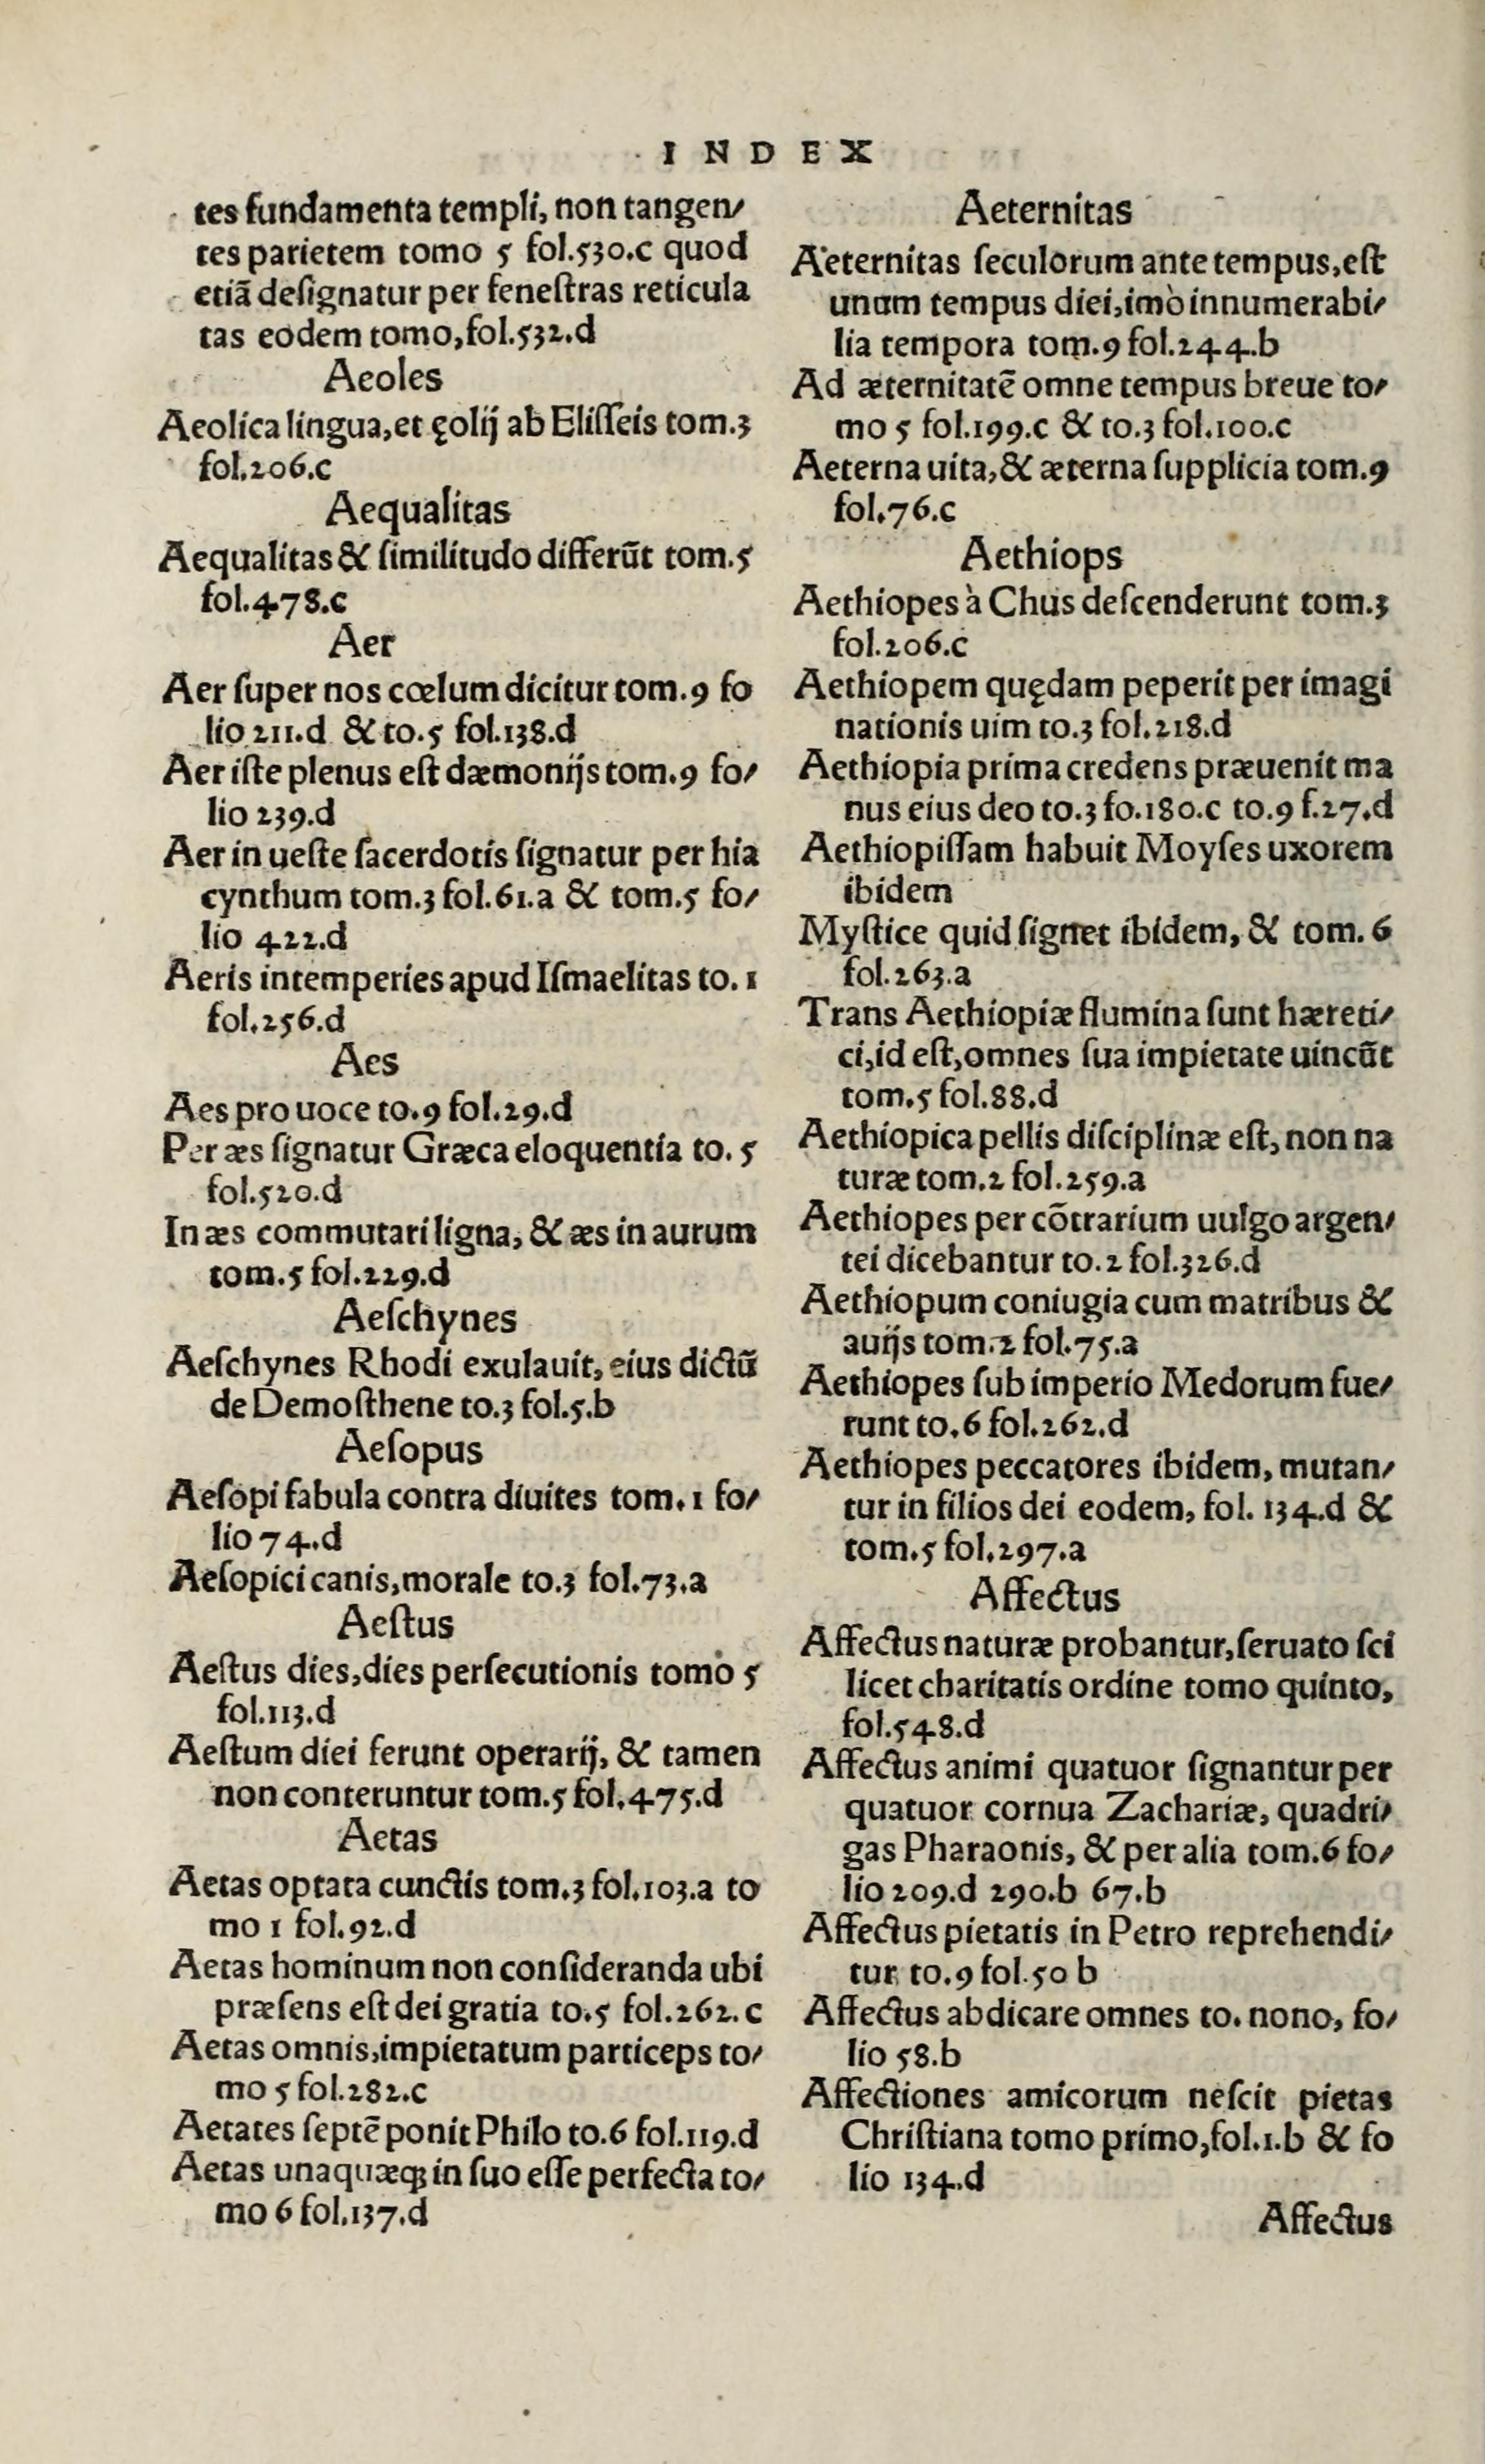 INDEX
tes fundamenta templi, non tangen/
tes parietem tomo 5 fol.530.c quod
etiã deſignatur per feneſtras reticula
tas eodem tomo,fol.532.d
Aeoles
Aeolica lingua,et ęolij ab Eliſſeis tom.3
fol.206.c
Aequalitas
Aequalitas & ſimilitudo differũt tom.5
fol.478.c
Aer
Aer ſuper nos cœlum dicitur tom.9 fo
lio 211.d & to.5 fol.138.d
Aer iſte plenus eſt dæmonijs tom.9 fo/
lio 239.d
Aer in ueſte ſacerdotis ſignatur per hia
cynthum tom.3 fol.61.a & tom.5 fo/
lio 422.d
Aeris intemperies apud Iſmaelitas to.1
fol.256.d
Aes
Aes pro uoce to.9 fol.29.d
Per æs ſignatur Græca eloquentia to.5
fol.520.d
In æs commutari ligna, & æs in aurum
tom.5 fol.229.d
Aeſchynes
Aeſchynes Rhodi exulauit, eius dictũ
de Demoſthene to.3 fol.5.b
Aeſopus
Aeſopi fabula contra diuites tom.1 fo/
lio 74.d
Aeſopici canis,morale to.3 fol.73.a
Aeſtus
Aeſtus dies,dies perſecutionis tomo 5
fol.113.d
Aeſtum diei ferunt operarij, & tamen
non conteruntur tom.5 fol.475.d
Aetas
Aetas optata cunctis tom.3 fol.103.a to
mo 1 fol.92.d
Aetas hominum non conſideranda ubi
præſens eſt dei gratia to.5 fol.262.c
Aetas omnis,impietatum particeps to/
mo 5 fol.282.c
Aetates ſeptẽ ponit Philo to.6 fol.119.d
Aetas unaquæqꝫ in ſuo eſſe perfecta to/
mo 6 fol.137.d
Aeternitas
Aeternitas ſeculorum ante tempus,eſt
unum tempus diei,imò innumerabi/
lia tempora tom.9 fol.244.b
Ad æternitatẽ omne tempus breue to/
mo 5 fol.199.c & to.3 fol.100.c
Aeterna uita,& æterna ſupplicia tom.9
fol.76.c
Aethiops
Aethiopes à Chus deſcenderunt tom.3
fol.206.c
Aethiopem quędam peperit per imagi
nationis uim to.3 fol.218.d
Aethiopia prima credens præuenit ma
nus eius deo to.3 fo.180.c to.9 f.27.d
Aethiopiſſam habuit Moyſes uxorem
ibidem
Myſtice quid ſignet ibidem, & tom. 6
fol.263.a
Trans Aethiopiæ flumina ſunt hæreti/
ci,id eſt,omnes ſua impietate uincũt
tom.5 fol.88.d
Aethiopica pellis diſciplinæ eſt, non na
turæ tom.2 fol.259.a
Aethiopes per cõtrarium uulgo argen/
tei dicebantur to.2 fol.326.d
Aethiopum coniugia cum matribus &
auijs tom.2 fol.75.a
Aethiopes ſub imperio Medorum fue/
runt to.6 fol.262.d
Aethiopes peccatores ibidem, mutan/
tur in filios dei eodem, fol. 134.d &
tom.5 fol.297.a
Affectus
Affectus naturæ probantur,ſeruato ſci
licet charitatis ordine tomo quinto,
fol.548.d
Affectus animi quatuor ſignantur per
quatuor cornua Zachariæ, quadri/
gas Pharaonis, & per alia tom.6 fo/
lio 209.d 290.b 67.b
Affectus pietatis in Petro reprehendi/
tur to.9 fol.50 b
Affectus abdicare omnes to. nono, fo/
lio 58.b
Affectiones amicorum neſcit pietas
Chriſtiana tomo primo,fol.1.b & fo
lio 134.d
Affectus